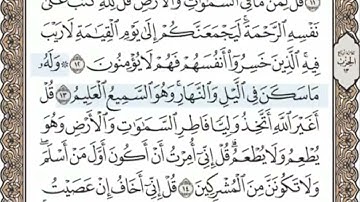 ١١ قُل لِّمَن مَّا فِي ٱلسَّمَٰوَٰتِ وَٱلْأَرْضِ قُل لِّلَّهِ كَتَبَ عَلَىٰ
نَفْسِهِ ٱلرَّحْمَةَ لَيَجْمَعَنَّكُمْ إِلَىٰ يَوْمِ ٱلْقِيَٰمَةِ لَا رَيْبَ
فِيهِ ٱلَّذِينَ خَسِرُوٓا۟ أَنفُسَهُمْ فَهُمْ لَا يُؤْمِنُونَ ١٢ ۞ وَلَهُۥ
مَا سَكَنَ فِي ٱلَّيْلِ وَٱلنَّهَارِ وَهُوَ ٱلسَّمِيعُ ٱلْعَلِيمُ ١٣ قُلْ
أَغَيْرَ ٱللَّهِ أَتَّخِذُ وَلِيًّا فَاطِرِ ٱلسَّمَٰوَٰتِ وَٱلْأَرْضِ وَهُوَ
يُطْعِمُ وَلَا يُطْعَمُ قُلْ إِنِّيٓ أُمِرْتُ أَنْ أَكُونَ أَوَّلَ مَنْ أَسْلَمَ
وَلَا تَكُونَنَّ مِنَ ٱلْمُشْرِكِينَ ١٤ قُلْ إِنِّيٓ أَخَافُ إِنْ عَصَيْتُ